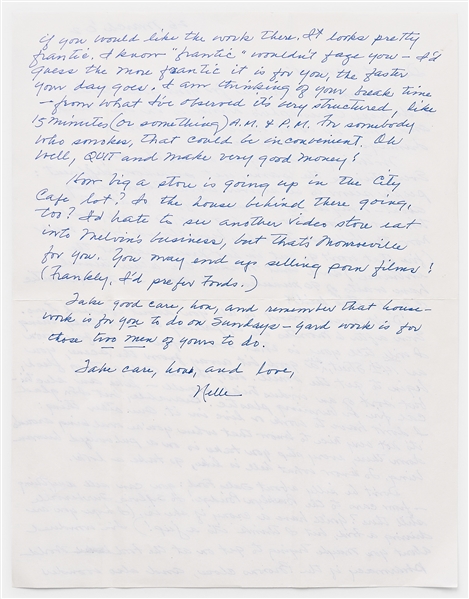 if you would like the work there. It looks pretty
frantic. I know "frantic" wouldn't faze you — I'd
guess the more frantic it is for you, the faster
your day goes. I am thinking of your break time
— from what I've observed it's very structured, like
15 minutes (or something) A.M. & P.M. For somebody
who smokes, that could be inconvenient. Oh
well, QUIT and make very good money!
How big a store is going up in the City
Cafe lot? Is the house behind there going,
too? I'd hate to see another video store eat
into Melvin's business, but that's Monroeville
for you. You may end up selling porn films!
(Frankly, I'd prefer Fords.)
Take good care, hon, and remember that house-
work is for you to do on Sundays — yard work is for
those two men of yours to do.
Take care, hon, and love,
Nelle